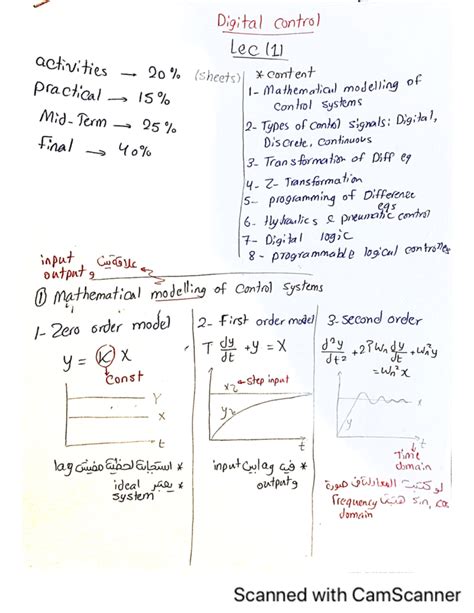 Digital control
Lec (1)
activities → 20% (sheets)
Practical → 15%
Mid-Term → 25%
Final → 40%
* content
1- Mathematical modelling of
control systems
2- Types of control signals: Digital,
Discrete, continuous
3- Transformation of Diff eq
4- Z- Transformation
5- programming of Difference
eqs
6- Hydraulics & pneumatic control
7- Digital logic
8- programmable logical controller
input
output و علاقة بين
① Mathematical modelling of control systems
1- Zero order model
y = K x
Const
Y
X
t
* استجابة لحظية مفيش lag
* يعتبر ideal
system
2- First order model
T dy/dt + y = x
x
step input
y
t
* فيه lag بين input
و output
3- second order
d²y/dt² + 2ζ Wn dy/dt + Wn² y
= Wn² x
y
t
Time
domain
لو كتبت المعادلة في صورة
sin, cos Frequency
domain
Scanned with CamScanner